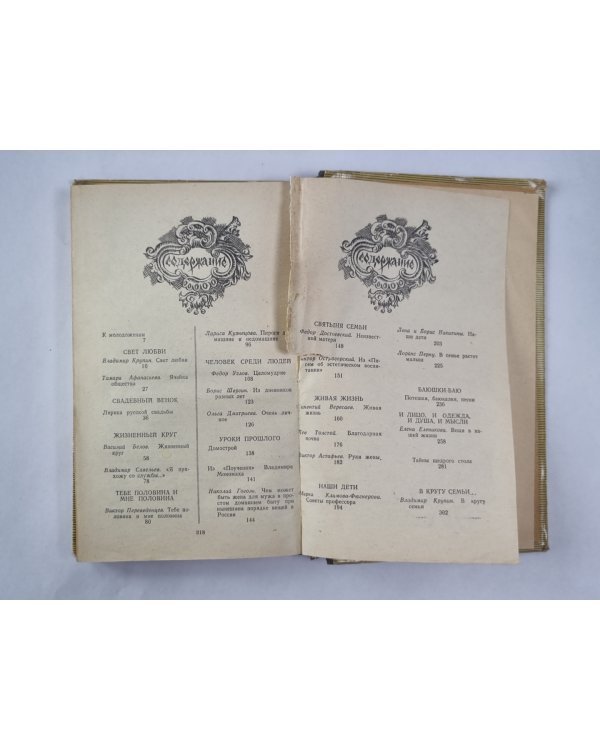 Содержание
К молодоженам
7
СВЕТ ЛЮБВИ
Владимир Крупин. Свет любви
10
Тамара Афанасьева. Ячейка
общества
27
СВАДЕБНЫЙ ВЕНОК
Лирика русской свадьбы
36
ЖИЗНЕННЫЙ КРУГ
Василий Белов. Жизненный
круг
58
Владимир Солоухин. «Я при-
хожу со службы..»
78
ТЕБЕ ПОЛОВИНА И
МНЕ ПОЛОВИНА
Виктор Переведенцев. Тебе по-
ловина и мне половина
80
Лариса Кузнецова. Первая
машние и недомашние
96
ЧЕЛОВЕК СРЕДИ ЛЮДЕЙ
Федор Углов. Целомудрие
108
Борис Шергин. Из дневников
разных лет
123
Ольга Дмитриева. Очень лич-
ное
126
УРОКИ ПРОШЛОГО
Домострой
138
Из «Поучения» Владимира
Мономаха
141
Николай Гоголь. Чем может
быть жена для мужа в про-
стом домашнем быту при
нынешнем порядке вещей в
России
144
318
Содержание
СВЯТЫНЯ СЕМЬИ
Федор Достоевский. Неизвест-
ной матери
149
Острогорский. Из «Пи-
сем об эстетическом воспи-
тании»
151
ЖИВАЯ ЖИЗНЬ
Викентий Вересаев. Живая
жизнь
160
Лев Толстой. Благодарная
почва
176
Виктор Астафьев. Руки жены,
183
НАШИ ДЕТИ
Мария
Советы профессора
194
Лена и Борис Никитины. На-
ши дети
203
Лоранс Перну. В семье растет
малыш
225
БАЮШКИ-БАЮ
Потешки, баюкалки, песни
236
И ЛИЦО, И ОДЕЖДА,
И ДУША, И МЫСЛИ
Елена Еленикова. Вещи в на-
шей жизни
258
Тайны щедрого стола
281
В КРУГУ СЕМЬИ...
Владимир Крупин. В кругу
семьи
302